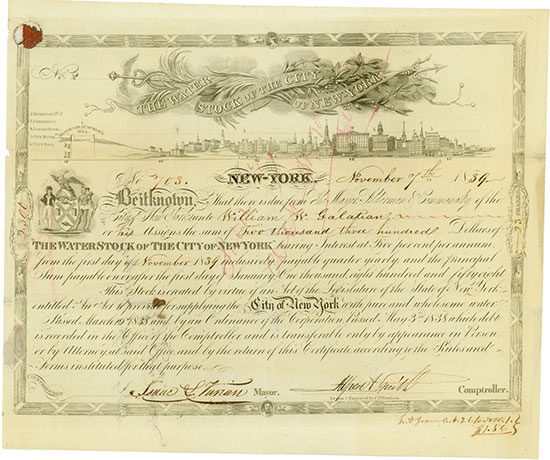 THE WATER STOCK OF THE CITY OF NEW-YORK
No. 703. NEW-YORK. November 7th 1839
Be it known, That there is due from the Mayor, Aldermen & Commonalty of the
City of New York unto William W. Galatian
or his Assigns the sum of Two thousand three hundred Dollars of
THE WATER STOCK OF THE CITY OF NEW YORK bearing Interest at Five per cent per annum
from the first day of November 1839 inclusively, payable quarter yearly, and the principal
Sum payable on or after the first day of January One thousand eight hundred and fifty eight
This Stock is created by virtue of an Act of the Legislature of the State of New York
entitled An Act to provide for supplying the City of New York with pure and wholesome water
Passed March 29th 1838 and by an Ordinance of the Corporation Passed May 3d 1838 which debt
is recorded in the Office of the Comptroller and is transferable only by appearance in Person
or by Attorney at said Office and by the return of this Certificate according to the Rules and
Forms instituted for that purpose.
Isaac L. Varian Mayor. Comptroller.